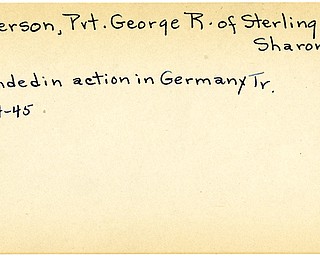 erson, Pvt. George R. of Sterling
Sharon
nded in action in Germany Tr.
-45